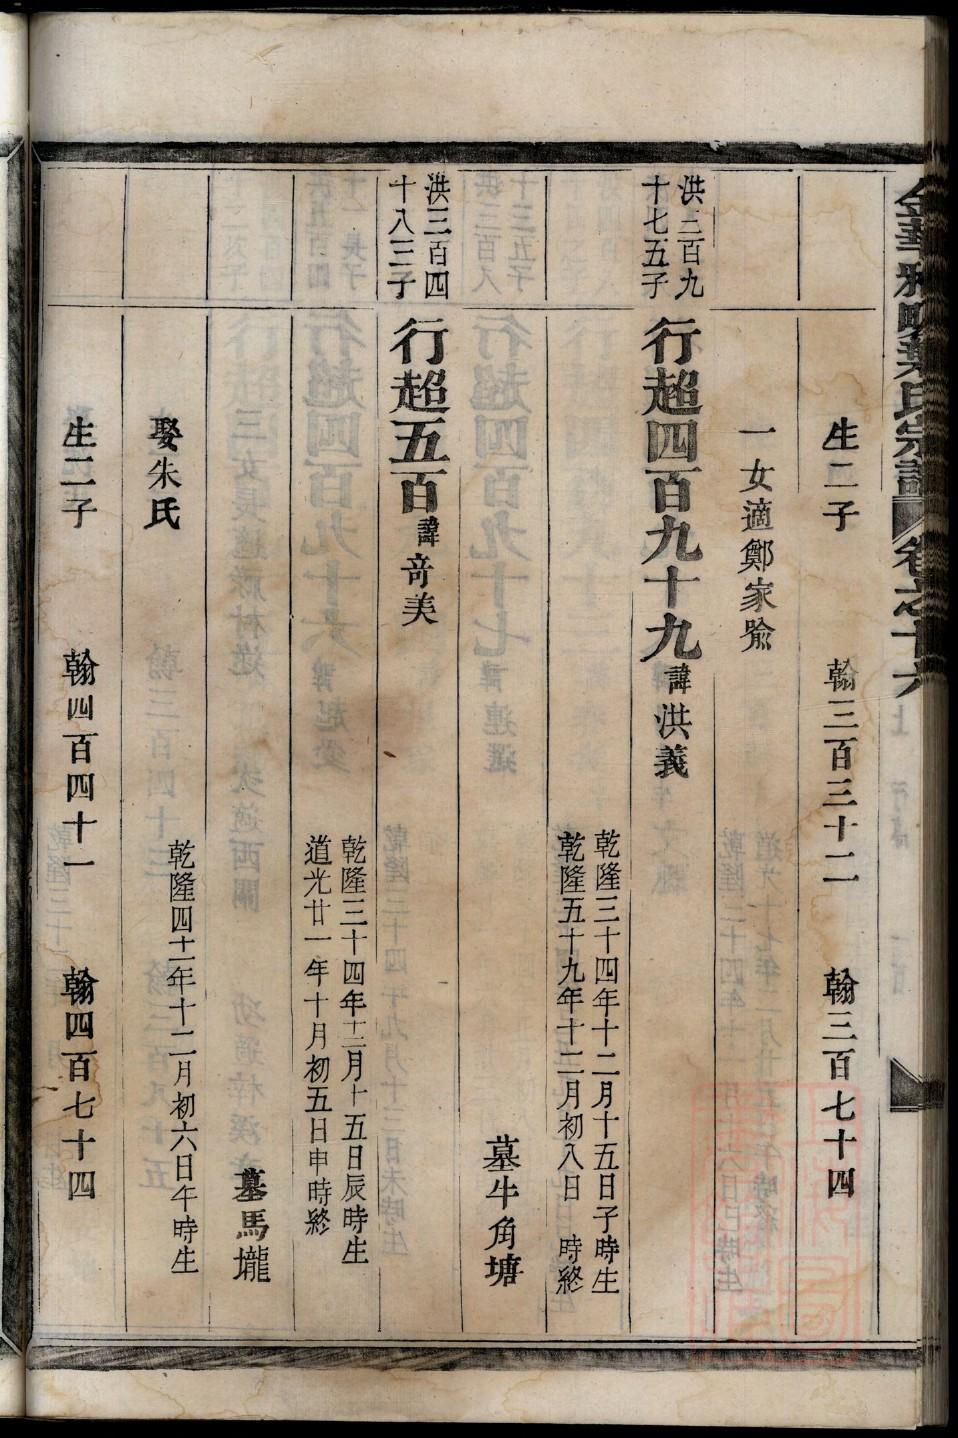 生二子 翰三百三十二 翰三百七十四
一女適鄭家
洪三百九
十七五子
行超四百九十九諱洪義
乾隆三十四年十二月十五日子時生
乾隆五十九年十二月初八日 時終
墓牛角塘
洪三百四
十八三子
行超五百諱奇美
乾隆三十四年十二月十五日辰時生
道光廿一年十月初五日申時終
墓馬壠
娶朱氏 乾隆四十二年十二月初六日午時生
生二子 翰四百四十一 翰四百七十四